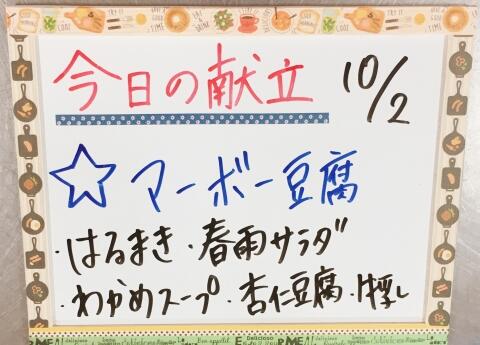 今日の献立 10/2
☆ マーボー豆腐
・はるまき・春雨サラダ
・わかめスープ・杏仁豆腐・牛乳